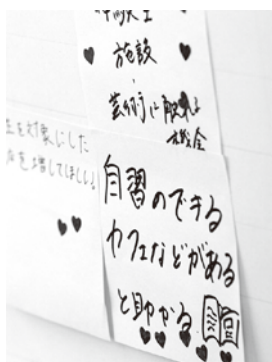 施設
芸術に触れる
機会
を対象にした
を増してほしい
自習のできる
カフェなどがある
と助かる